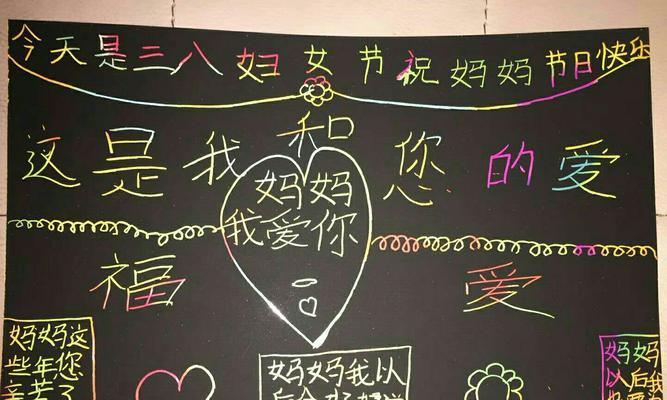 今天是三八妇女节祝妈妈节日快乐
这是我和您的爱
妈妈
我爱你
福
爱
妈妈这
些年您
辛苦了
妈妈我以
后会好好
妈妈
以后我